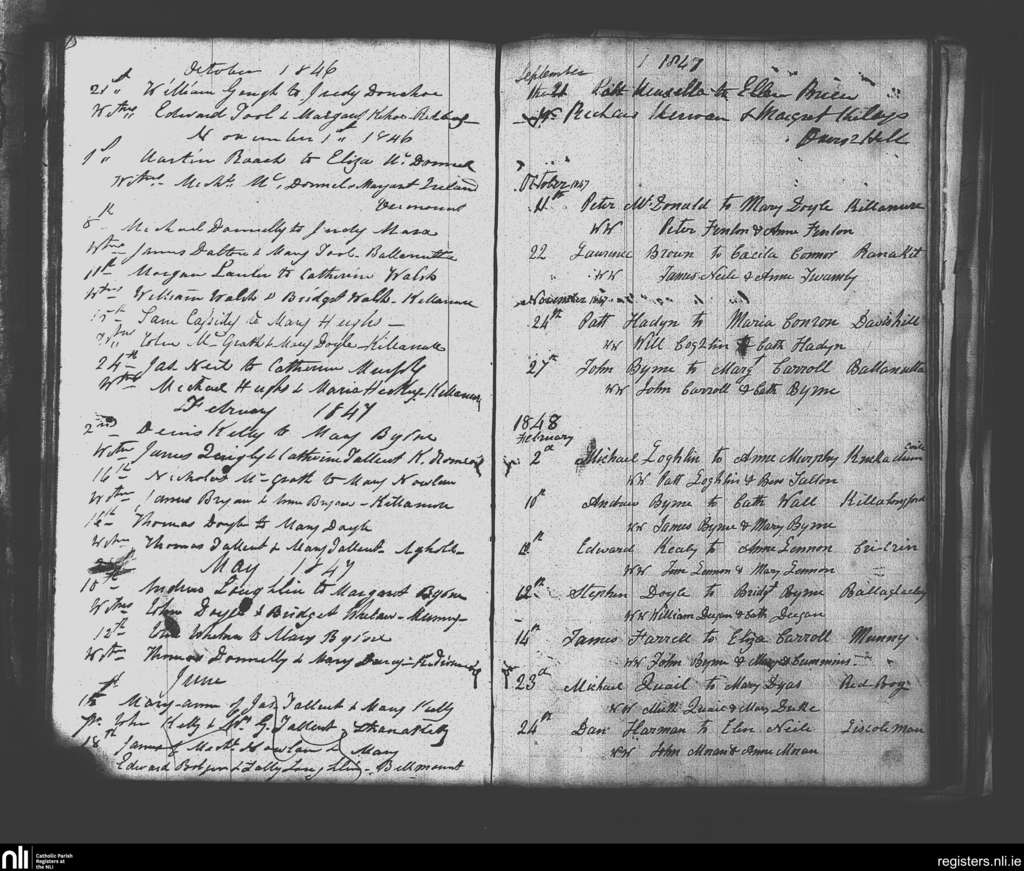 October 1846
21st William Gough to Judy Donohoe
Wtns Edward Tool & Margaret Kehoe
November 1st 1846
1st Martin Roach to Eliza Mc Donnel
Wtns Mc Donnel Margaret Ireland
8th Michael Donnelly to Judy Mara
Wtns James Dalton & Mary Tool Ballanultta
11th Morgan Lawlor to Catherine Walsh
Wtns William Walsh & Bridget Walsh Killamure
Cassidy to Mary Hughs
John Mc Grath & Mary Doyle Killamure
24th Jas Neil to Catherine Murphy
Wtns Michael Hughs & Maria Killamure
February 1847
2nd Denis Kelly to Mary Byrne
Wtns James & Catherine Tallent
16th Nicholas Mc Grath to Mary Nowlan
Wtns James Bryan & Killamure
16th Thomas Doyle to Mary Doyle
Wtns Thomas Tallent & Mary Tallent
May 1847
10th Andrew Loughlin to Margaret Byrne
Wtns John Doyle & Bridget Munny
12th John Whelan to Mary Byrne
Wtns Thomas Donnelly & Mary Darcy
June
Mary-anne of Jas Tallent & Mary Kelly
John Kelly & G. Tallent
18th James of Nowlan & Mary
Edward & Loughlin Bellmount
September 1847
the 21 Patt Kinsella to Ellen Brien
Richard Kerwan & Margret
Davis Hill
October 1847
11th Peter McDonald to Mary Doyle Killamure
WW Peter Fenlon & Anne Fenlon
22 Laurence Brown to Cacila Connor Ranakit
WW James Neile & Anne Twamly
November 1847
24th Patt Hadyn to Maria Conron Davishill
WW Will Coghlin & Cath Hadyn
27th John Byrne to Margt Carroll Ballanultta
WW John Carroll & Cath Byrne
1848
February
2d Michael Loghlin to Anne Murphy
WW Patt Loghlin & Bess Tallon
10th Andrew Byrne to Cath Wall
WW James Byrne & Mary Byrne
Edward Healy to Anne Lennon
WW Lennon & Mary Lennon
12th Stephen Doyle to Bridgt Byrne
WW William Deegan & Cath Deegan
14th James Farrell to Eliza Carroll Munny
WW John Byrne & Mary Cummins
23d Michael Quail to Mary Dyas Red Bog
WW Mich Quail & Mary Duke
24th Dan Harman to Elen Neile Liscolman
WW John Moran & Anne Moran
nli
Catholic Parish
Registers at
the NLI
registers.nli.ie